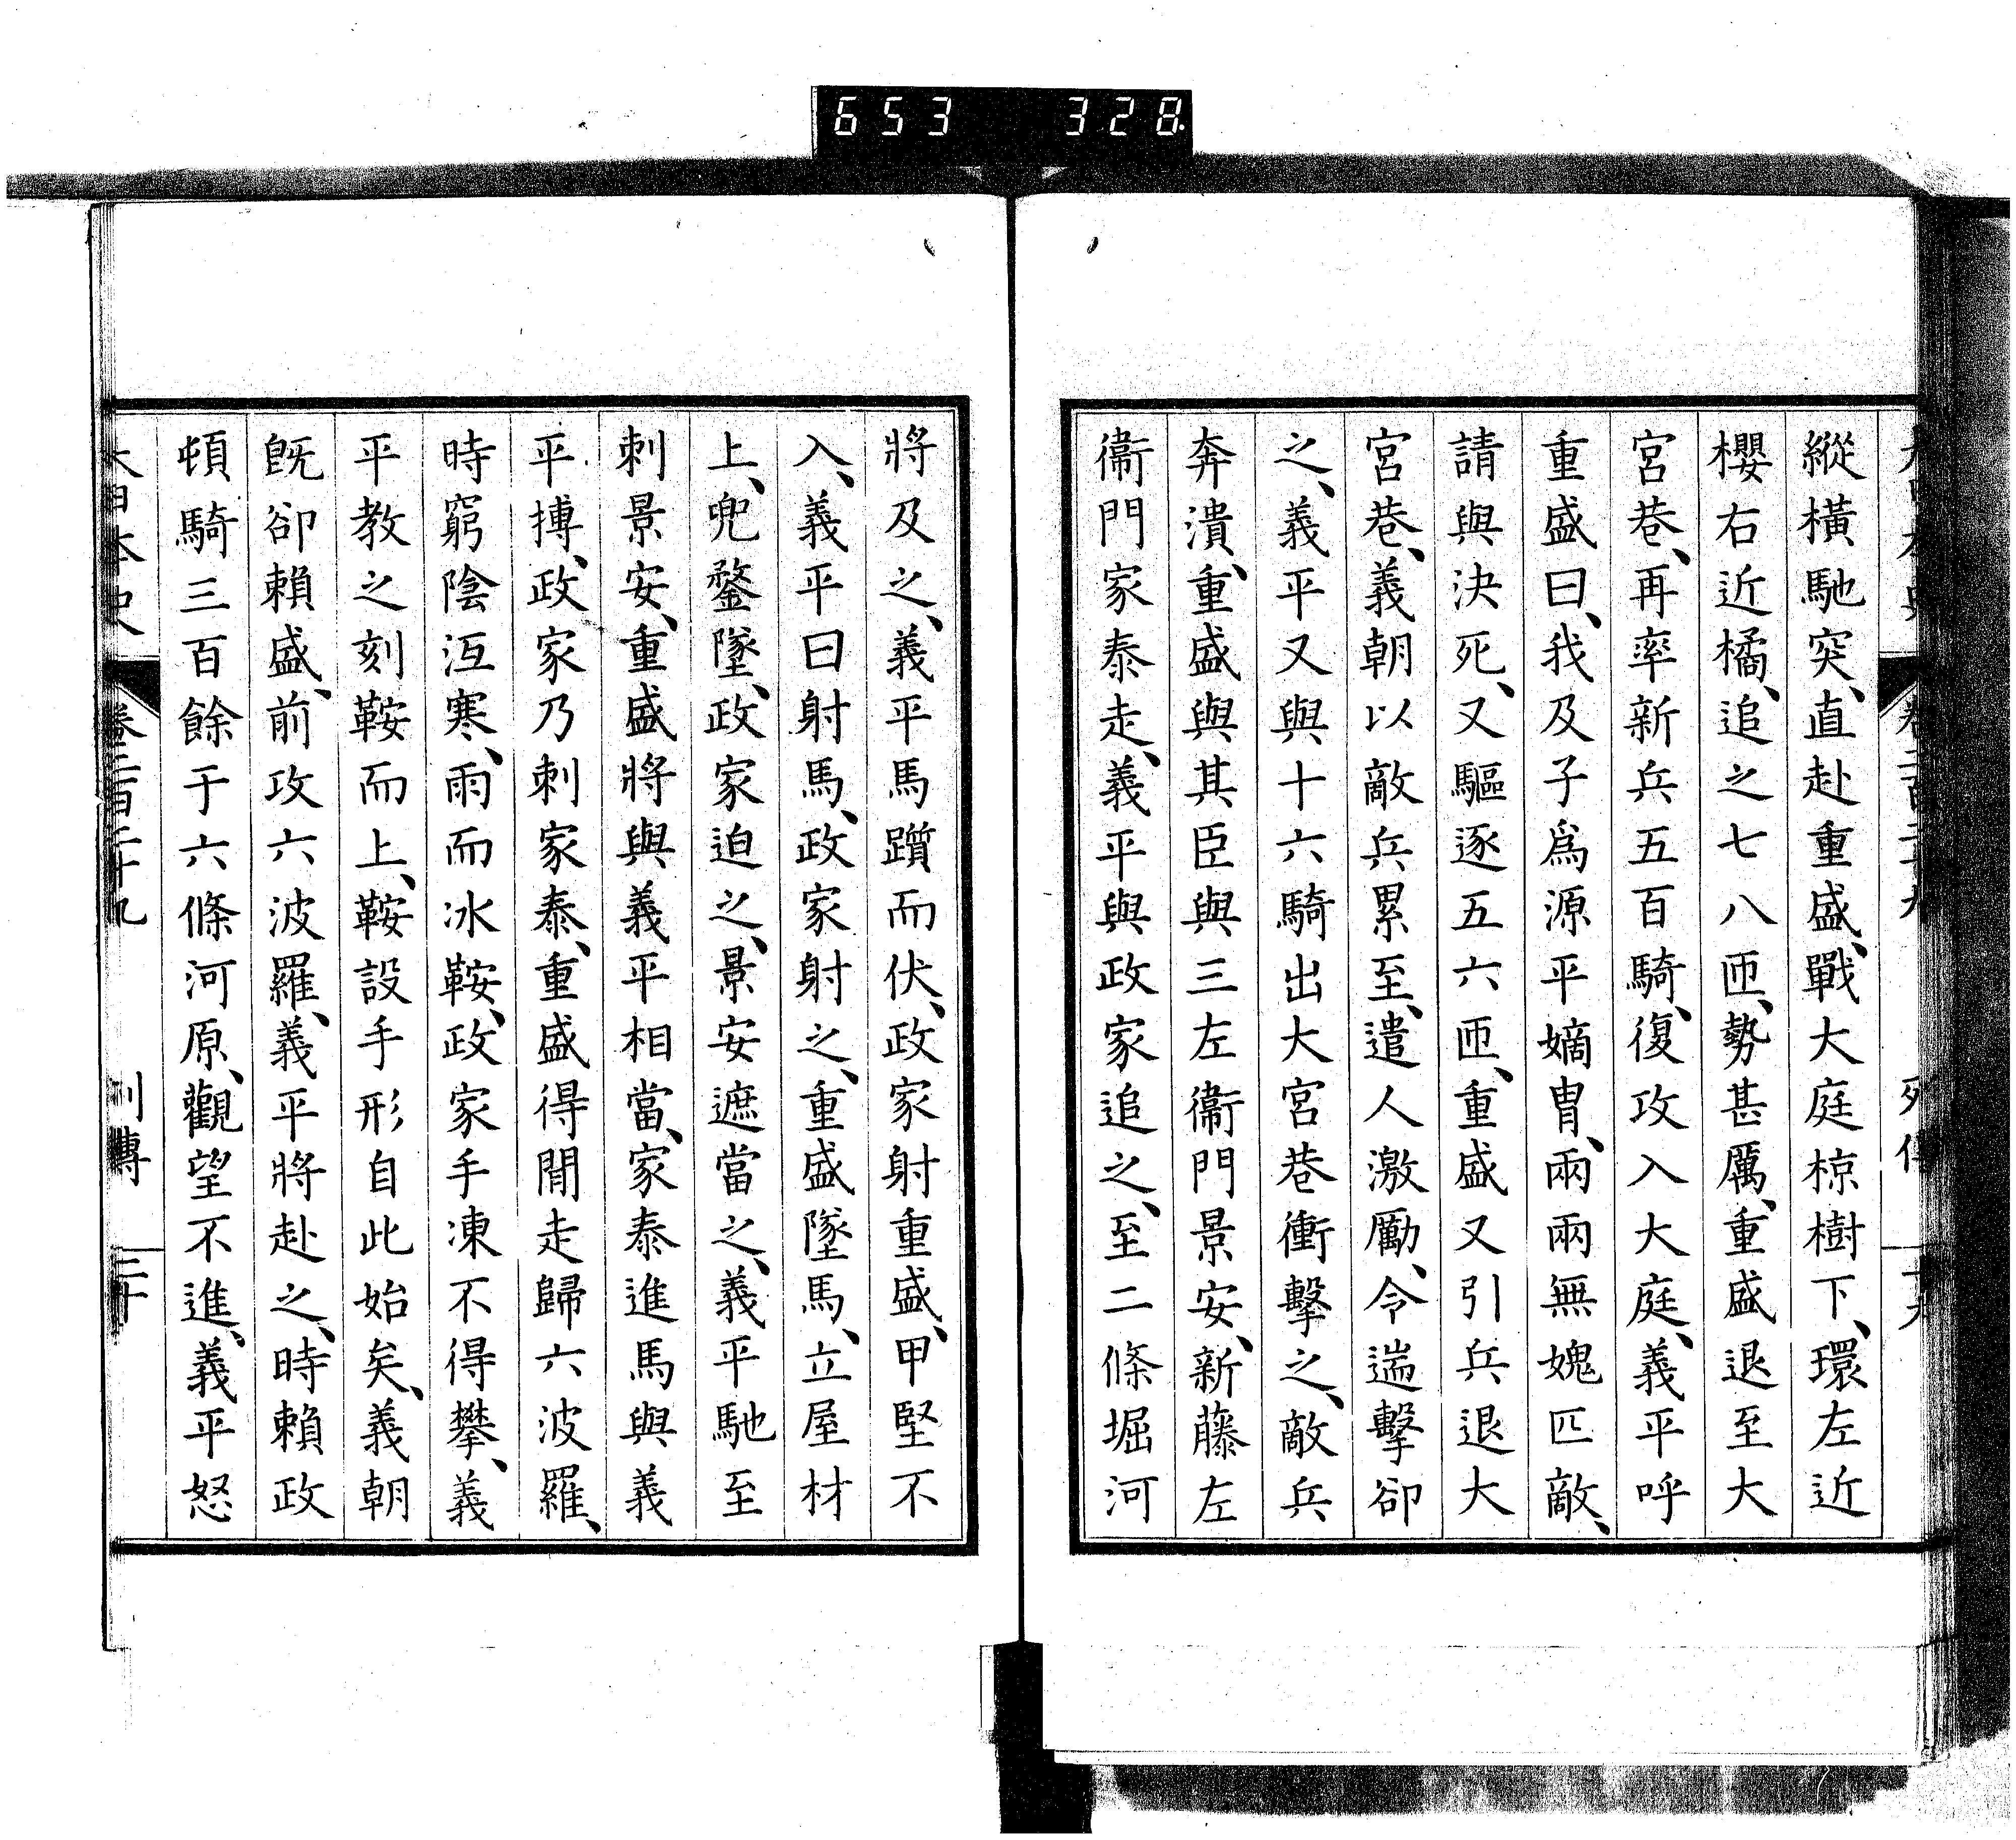 653 328
縱橫馳突、直赴重盛、戰大庭椋樹下、環左近
櫻右近橘、追之七八匝、勢甚厲、重盛退至大
宮巷、再率新兵五百騎、復攻入大庭、義平呼
重盛曰、我及子爲源平嫡冑、兩兩無媿匹敵、
請與決死、又驅逐五六匝、重盛又引兵退大
宮巷、義朝以敵兵累至、遣人激勵、令遄擊卻
之、義平又與十六騎出大宮巷衝擊之、敵兵
奔潰、重盛與其臣與三左衞門景安、新藤左
衞門家泰走、義平與政家追之、至二條堀河
將及之、義平馬躓而伏、政家射重盛、甲堅不
入、義平曰射馬、政家射之、重盛墜馬、立屋材
上、兜鍪墜、政家迫之、景安遮當之、義平馳至
刺景安、重盛將與義平相當、家泰進馬與義
平搏、政家乃刺家泰、重盛得閒走歸六波羅、
時窮陰沍寒、雨而冰鞍、政家手凍不得攀、義
平教之刻鞍而上、鞍設手形自此始矣、義朝
旣卻賴盛、前攻六波羅、義平將赴之、時賴政
頓騎三百餘于六條河原、觀望不進、義平怒
大日本史 卷一百二十九 列傳 二十